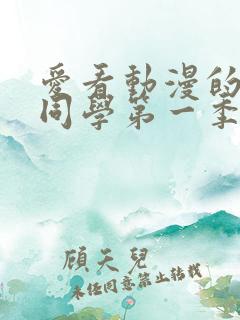 愛看動漫的
同學第一季
顧天兒
未經同意禁止轉載